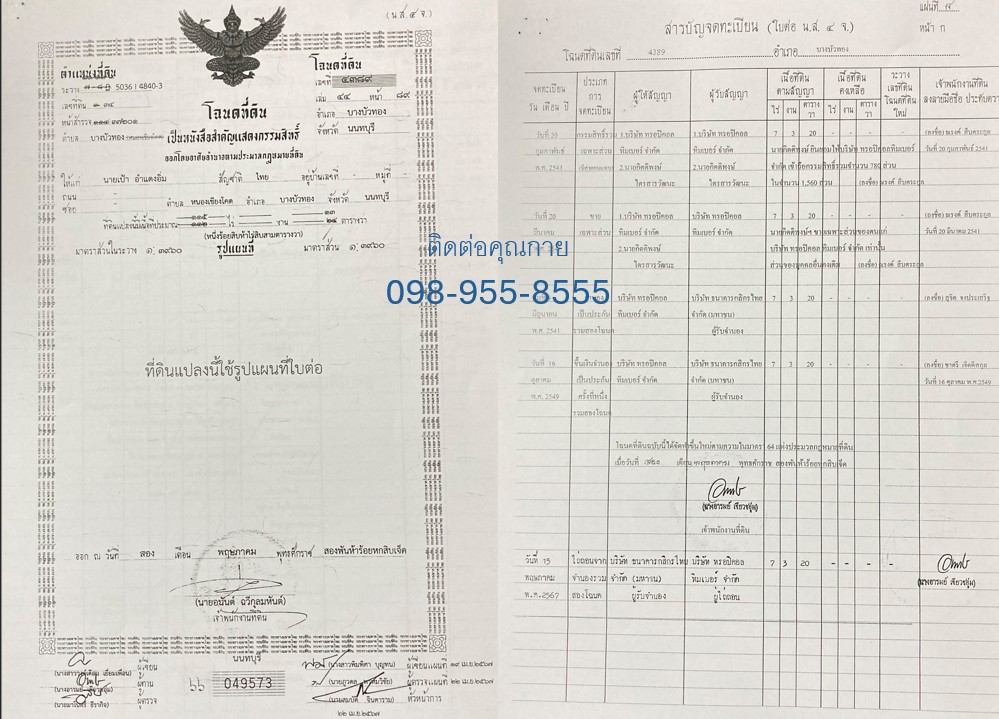 (น.ส. ๔ จ.)
ตำแหน่งที่ดิน
ระวาง 5036 I 4840-3
เลขที่ดิน ๓๔
หน้าสำรวจ
ตำบล บางบัวทอง
โฉนดที่ดิน
เลขที่ ๔๓๘๙
เล่ม ๔๔ หน้า ๘๙
อำเภอ บางบัวทอง
จังหวัด นนทบุรี
โฉนดที่ดิน
เป็นหนังสือสำคัญแสดงกรรมสิทธิ์
ออกโดยอาศัยอำนาจตามประมวลกฎหมายที่ดิน
ให้แก่ นายเป้า อำแดงอิ่ม สัญชาติ ไทย อยู่บ้านเลขที่ - หมู่ที่ -
ถนน
ซอย - ตำบล หนองเชียงโคต อำเภอ บางบัวทอง จังหวัด นนทบุรี
ที่ดินแปลงนี้มีเนื้อที่ประมาณ ไร่ งาน ตารางวา
(หนึ่งร้อยสิบห้าไร่สิบสามตารางวา)
มาตราส่วนในระวาง ๑: รูปแผนที่ มาตราส่วน ๑:
ติดต่อคุณกาย
098-955-8555
ที่ดินแปลงนี้ใช้รูปแผนที่ใบต่อ
ออก ณ วันที่ สอง เดือน พฤษภาคม พุทธศักราช สองพันห้าร้อยหกสิบเจ็ด
(นายอมันต์ ฉวีกุลมหันต์)
เจ้าพนักงานที่ดิน
นนทบุรี
049573
ผู้เขียน
ผู้ทาน
ผู้ตรวจ
ผู้เขียนแผนที่
ผู้ตรวจแผนที่
หัวหน้าการ
๒๒ เม.ย. ๒๕๖๗
แผ่นที่
สารบัญจดทะเบียน (ใบต่อ น.ส. ๔ จ.) หน้า ก
โฉนดที่ดินเลขที่ 4389 อำเภอ บางบัวทอง
จดทะเบียน วัน เดือน ปี
ประเภทการจดทะเบียน
ผู้ให้สัญญา
ผู้รับสัญญา
เนื้อที่ดินตามสัญญา
ไร่ งาน ตารางวา
เนื้อที่ดินคงเหลือ
ไร่ งาน ตารางวา
ระวาง เลขที่ดิน โฉนดที่ดินใหม่
เจ้าพนักงานที่ดิน ลงลายมือชื่อ ประทับตรา
วันที่ 20 กรรมสิทธิ์รวม 1.บริษัท ทรอปิคอล 1.บริษัท ทรอปิคอล 7 3 20 - - - -
กุมภาพันธ์ เฉพาะส่วน ทิมเบอร์ จำกัด ทิมเบอร์ จำกัด วันที่ 20 กุมภาพันธ์ 2541
พ.ศ. 2541 2.นายกิตติพงษ์ 2.นายกิตติพงษ์ จำกัด เข้าถือกรรมสิทธิ์รวมจำนวน 780 ส่วน
ไตรสารวัฒนะ ไตรสารวัฒนะ ในจำนวน 1,560 ส่วน
วันที่ 20 ขาย 1.บริษัท ทรอปิคอล 1.บริษัท ทรอปิคอล 7 3 20 - - - -
มีนาคม เฉพาะส่วน ทิมเบอร์ จำกัด ทิมเบอร์ จำกัด วันที่ 20 มีนาคม 2541
พ.ศ. 2541 2.นายกิตติพงษ์ บริษัท ทรอปิคอล ทิมเบอร์ จำกัด เท่านั้น
ไตรสารวัฒนะ ส่วนของบุคคลอื่นคงเดิม
จำนอง บริษัท ทรอปิคอล บริษัท ธนาคารกสิกรไทย 7 3 20 - - - -
มิถุนายน เป็นประกัน ทิมเบอร์ จำกัด จำกัด (มหาชน)
พ.ศ. 2541 รวมสองโฉนด ผู้รับจำนอง
วันที่ 16 ขึ้นเงินจำนอง บริษัท ทรอปิคอล บริษัท ธนาคารกสิกรไทย 7 3 20 - - - -
ตุลาคม เป็นประกัน ทิมเบอร์ จำกัด จำกัด (มหาชน) วันที่ 16 ตุลาคม พ.ศ.2549
พ.ศ. 2549 ครั้งที่หนึ่ง ผู้รับจำนอง
รวมสองโฉนด
โฉนดที่ดินฉบับนี้ได้จัดทำขึ้นใหม่ตามความในมาตรา 64 แห่งประมวลกฎหมายที่ดิน
เมื่อวันที่ เดือน พฤษภาคม พุทธศักราช สองพันห้าร้อยหกสิบเจ็ด
เจ้าพนักงานที่ดิน
วันที่ 15 ไถ่ถอนจาก บริษัท ธนาคารกสิกรไทย บริษัท ทรอปิคอล 7 3 20 - - - -
พฤษภาคม จำนองรวม จำกัด (มหาชน) ทิมเบอร์ จำกัด
พ.ศ.2567 สองโฉนด ผู้รับจำนอง ผู้ไถ่ถอน